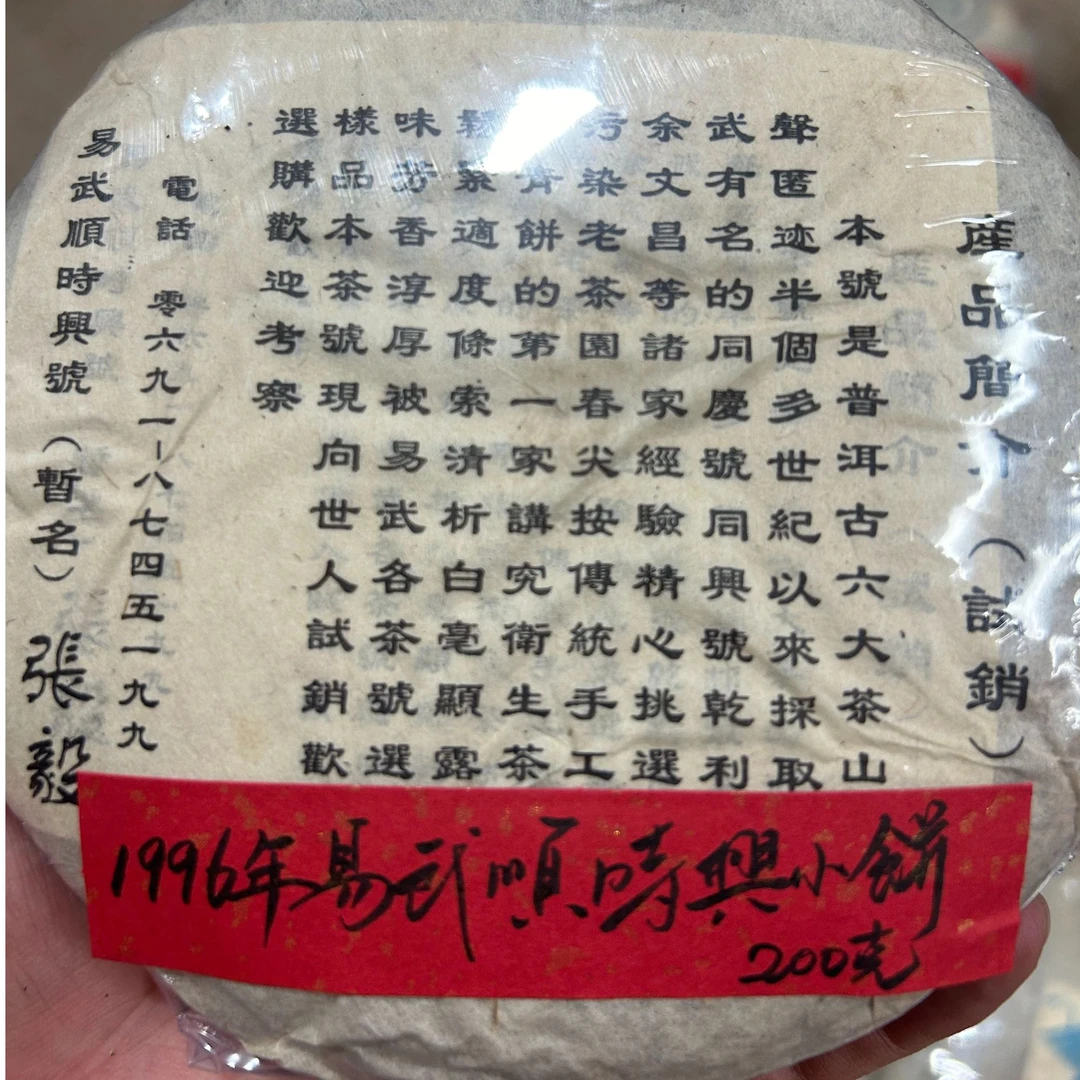 産品簡介（試銷）
本號是普洱古六大茶山
聲匿迹半個多世紀以來採取
武有名的同慶號同興號乾利
余文昌等諸家經驗精心挑選
污染老茶園春尖按傳統手工
青餅的第一家講究衛生茶
鬆緊適度條索清析白毫顯露
味芳香淳厚被易武各茶號選
樣品本茶號現向世人試銷歡
選購歡迎考察
電話 零六九一－八七四五一九九
易武順時興號（暫名）張毅
1996年易武順時興小餅
200克